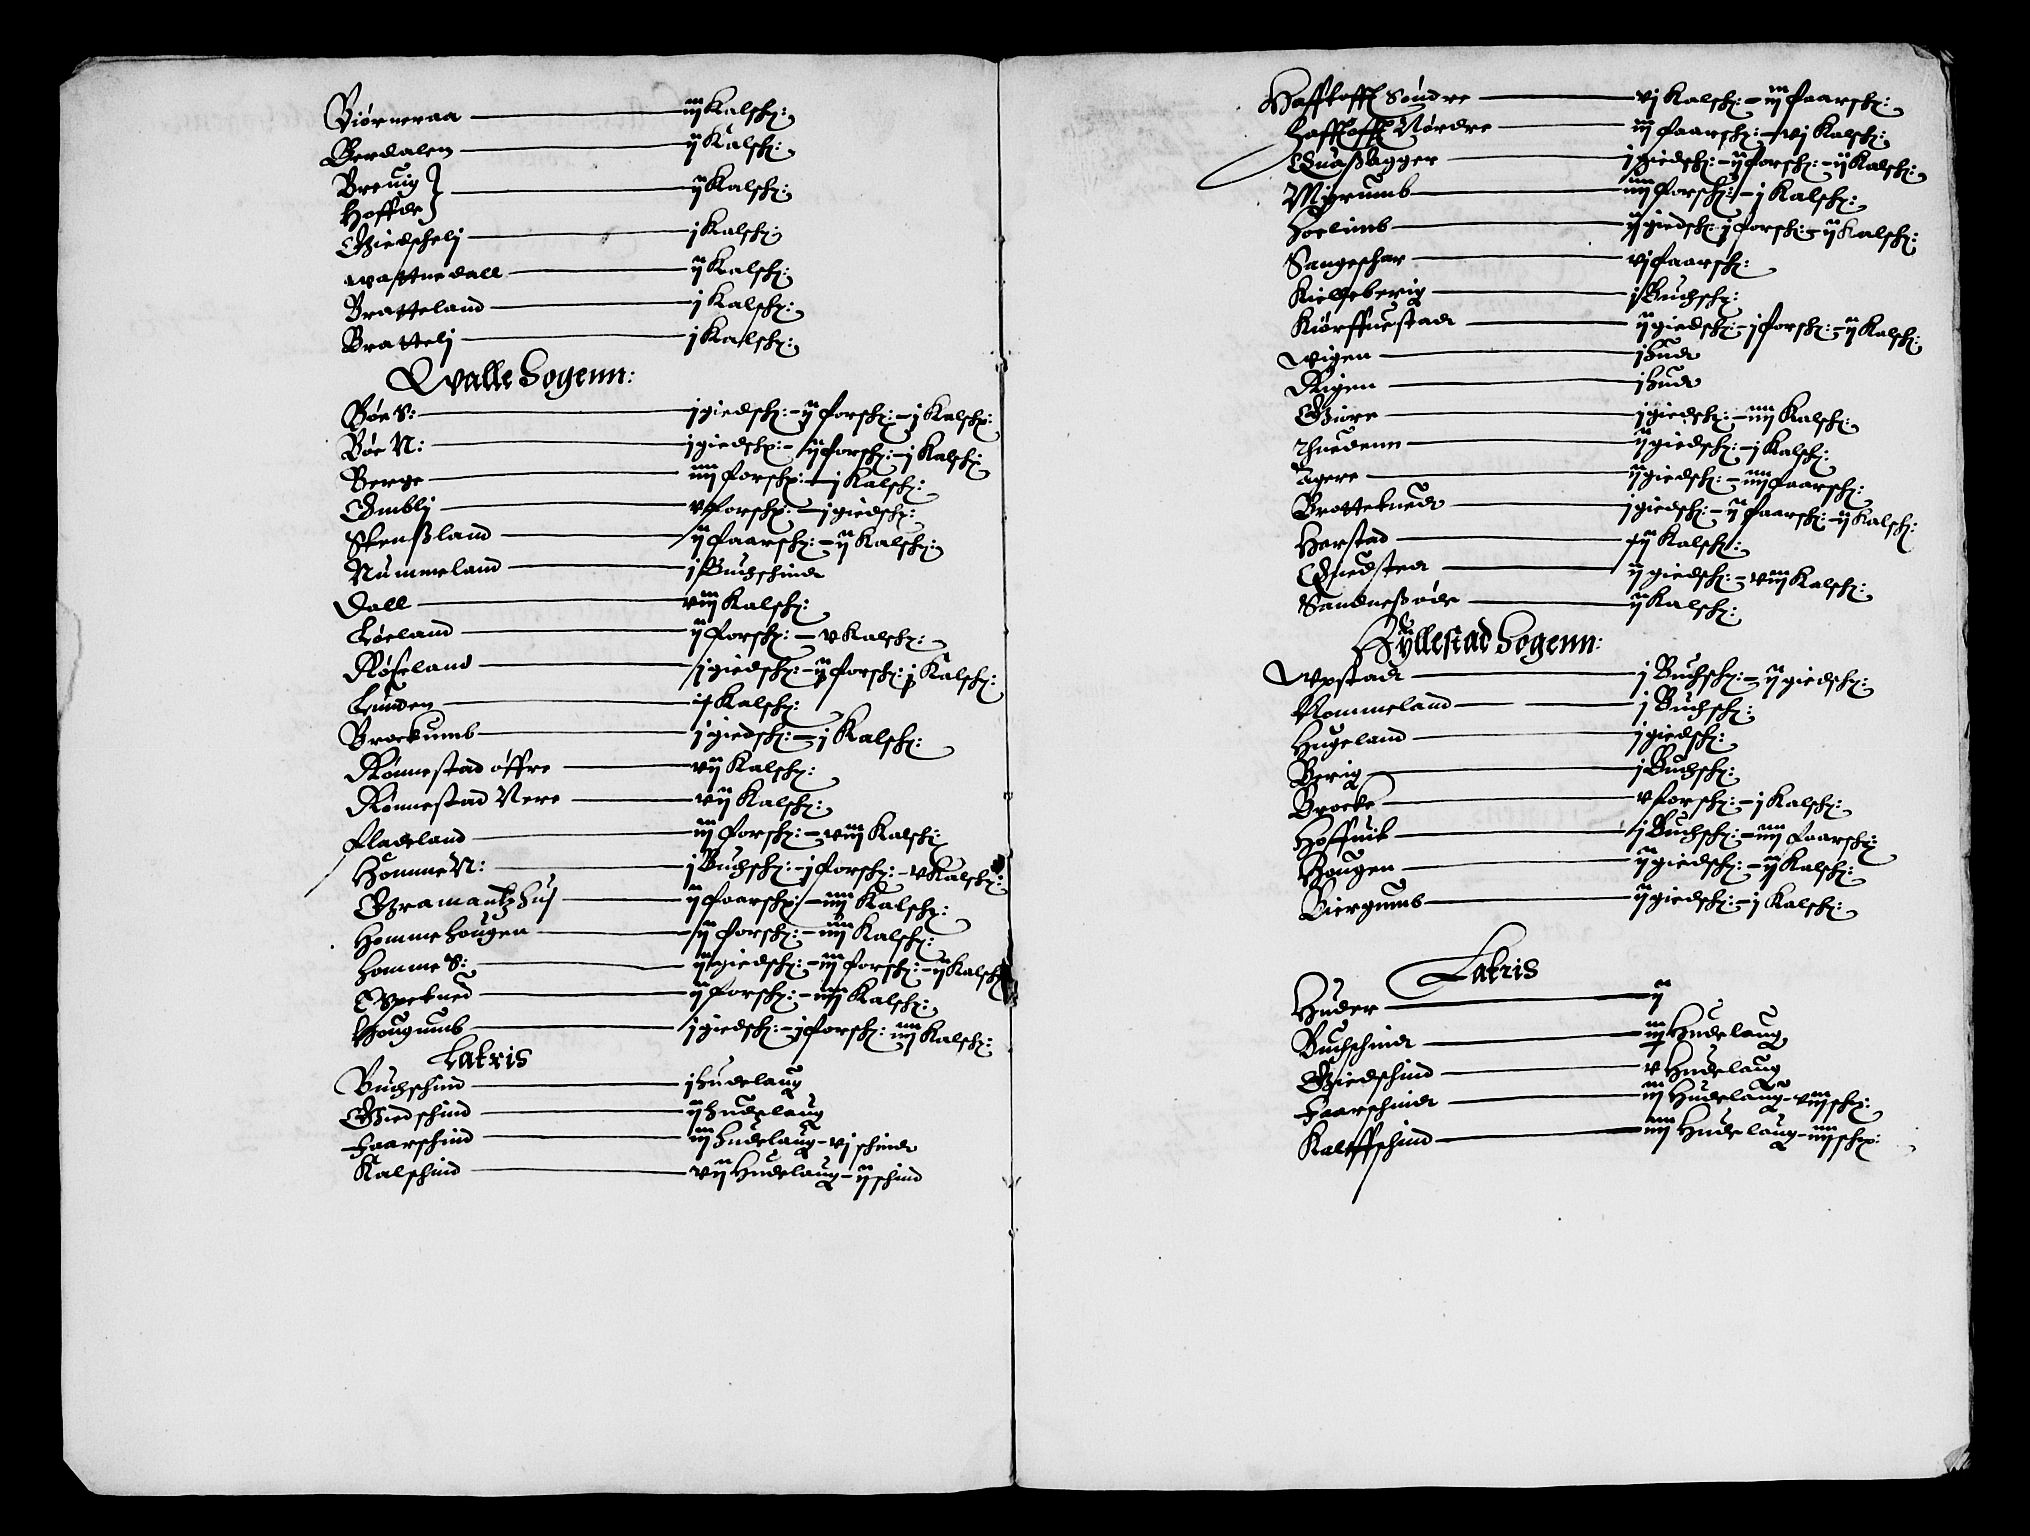 Biørneraa — iij Kalsk:
Berdalen — ij Kalsk:
Breuig
Hoffde — ij Kalsk:
Giedschelj — j Kalsk:
wattnedall — ij Kalsk:
Bratteland — j Kalsk:
Brattelj — j Kalsk:
Walle Sogenn:
Bøe S: — j giedsk: – ij forsk: – j Kalsk:
Bøe N: — j giedsk: – ij forsk: – j Kalsk:
Berge — iiij forsk: – j Kalsk:
Omblj — v forsk: – j giedsk:
Stenßland — ij faarsk: – ij Kalsk:
Nummeland — j Buchschind
Dall — viij Kalsk:
Løeland — ij forsk: – v Kalsk:
Røseland — j giedsk: – ij forsk: j Kalsk:
Lunden — Kalsk:
Brockumb — j giedsk: – j Kalsk:
Rønnestad øffre — vij Kalsk:
Rønnestad Nere — vij Kalsk:
fladeland — iij forsk: – viij Kalsk:
Homme N: — j Buchsk: – j forsk: – v Kalsk:
Gramantz huj — ij faarsk: – iiij Kalsk:
Homme hougen — ij forsk: – iiij Kalsk:
Homme S: — ij giedsk: – iij forsk: – ij Kalsk:
Ospekned — ij forsk: – iiij Kalsk:
Hougumb — j giedsk: – j forsk: iiij Kalsk:
Latris
Buchschind — j hudelaug
Giedschind — ij hudelaug
Faarschind — iiij hudelaug – vj schind
Kalschind — vij Hudelaug – ij schind
Haffthoffs Søndre — vj Kalsk: – iij faarsk:
haffthoffs Nørdre — iij faarsk: – vj Kalsk:
Quaßagger — j giedsk: – ij forsk: – ij Kalsk:
Myrumb — iiij forsk: – j Kalsk:
Hoelumb — ij giedsk: ij forsk: – ij Kalsk:
Sangeschar — vj faarsk:
Kielleberig — j Buchsk:
Kiørffuestad — ij giedsk: – j forsk: – ij Kalsk:
wigen — j hud
Rigen — j hud
Giore — j giedsk: – iiij Kalsk:
Thuedenn — ij giedsk: – j Kalsk:
Agere — ij giedsk: – iiij faarsk:
Brottekned — j giedsk: – ij faarsk: – ij Kalsk:
Harstad — ij Kalsk:
Quedsted — ij giedsk: – viij Kalsk:
Sandnesøde — ij Kalsk:
Hyllestad Sogenn:
Vpstad — j Buchsk: – ij giedsk:
Nommeland — j Buchsk:
Hugeland — j giedsk:
Berig — j Buchsk:
Brocke — v forsk: – j Kalsk:
Hoffuik — j Buchsk: – iiij faarsk:
Hougen — ij giedsk: – ij Kalsk:
Biergumb — ij giedsk: – j Kalsk:
Latris
Huder — ij
Buchschind — iij Hudelaug
Giedschind — v Hudelaug
Faarschind — iij Hudelaug – viij sk:
Kalffschind — iiij Hudelaug – iiij sk: